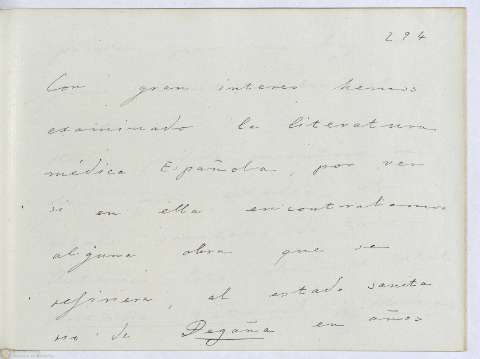 294
Con gran interes hemos
examinado la literatura
médica Española, por ver
si en ella encontrabamos
alguna obra que se
refiriera, al estado sanita
rio de Degaña en años